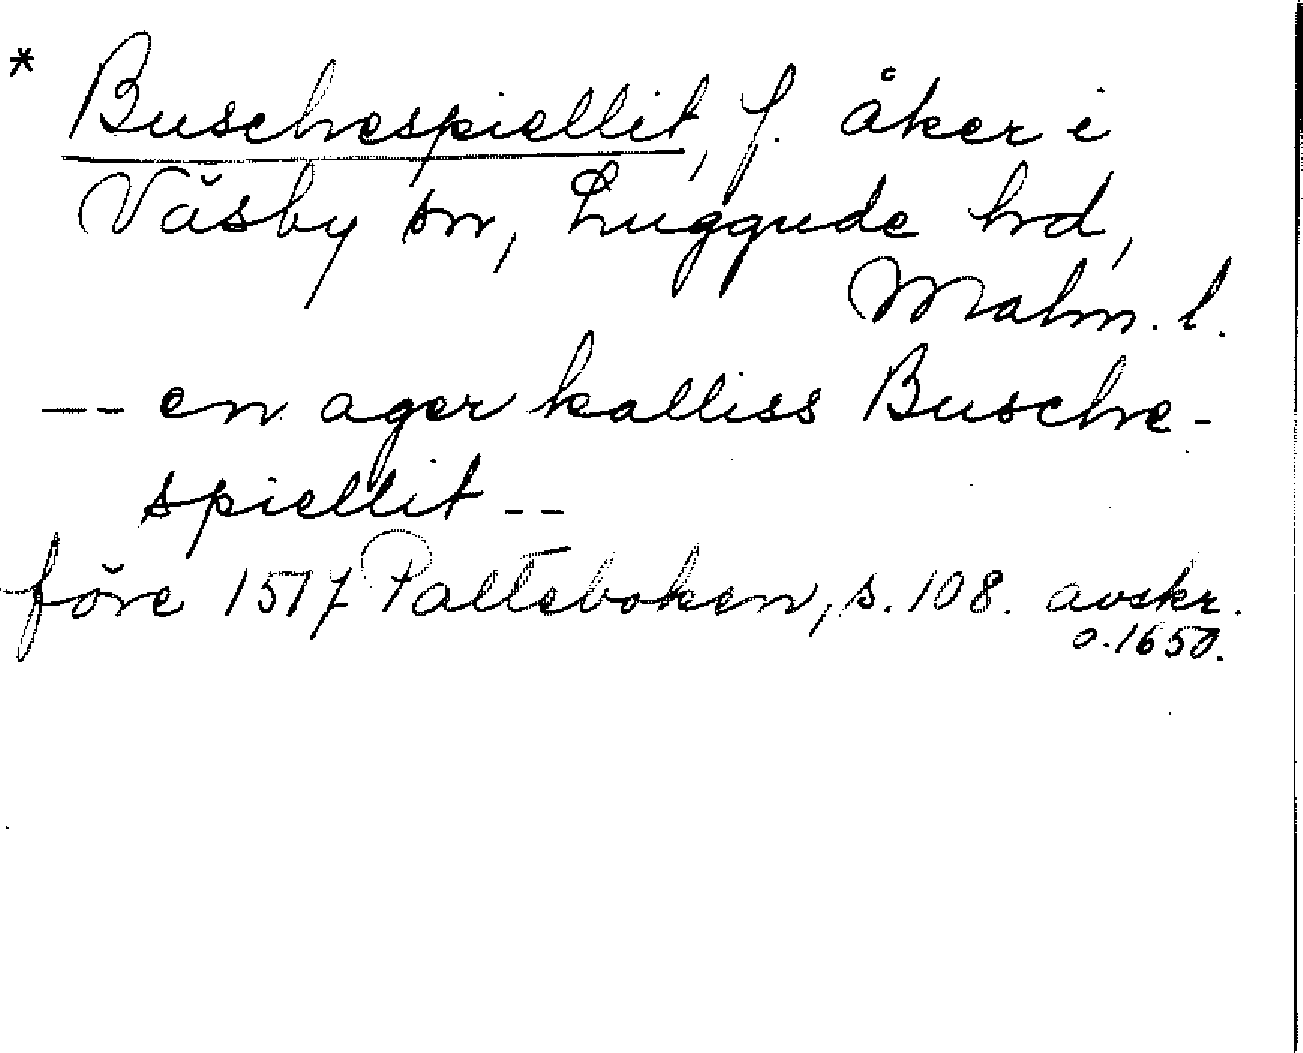 * Buschespiellit, f. åker i
Väsby sn, Luggude hd,
Malm. l.
-- en ager kalliss Busche-
spiellit --
före 1517 Palteboken, s. 108. avskr.
o. 1650.